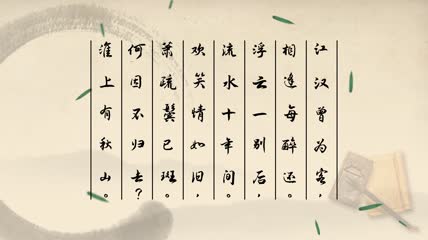 江汉曾为客，
相逢每醉还。
浮云一别后，
流水十年间。
欢笑情如旧，
萧疏鬓已斑。
何因不归去？
淮上有秋山。